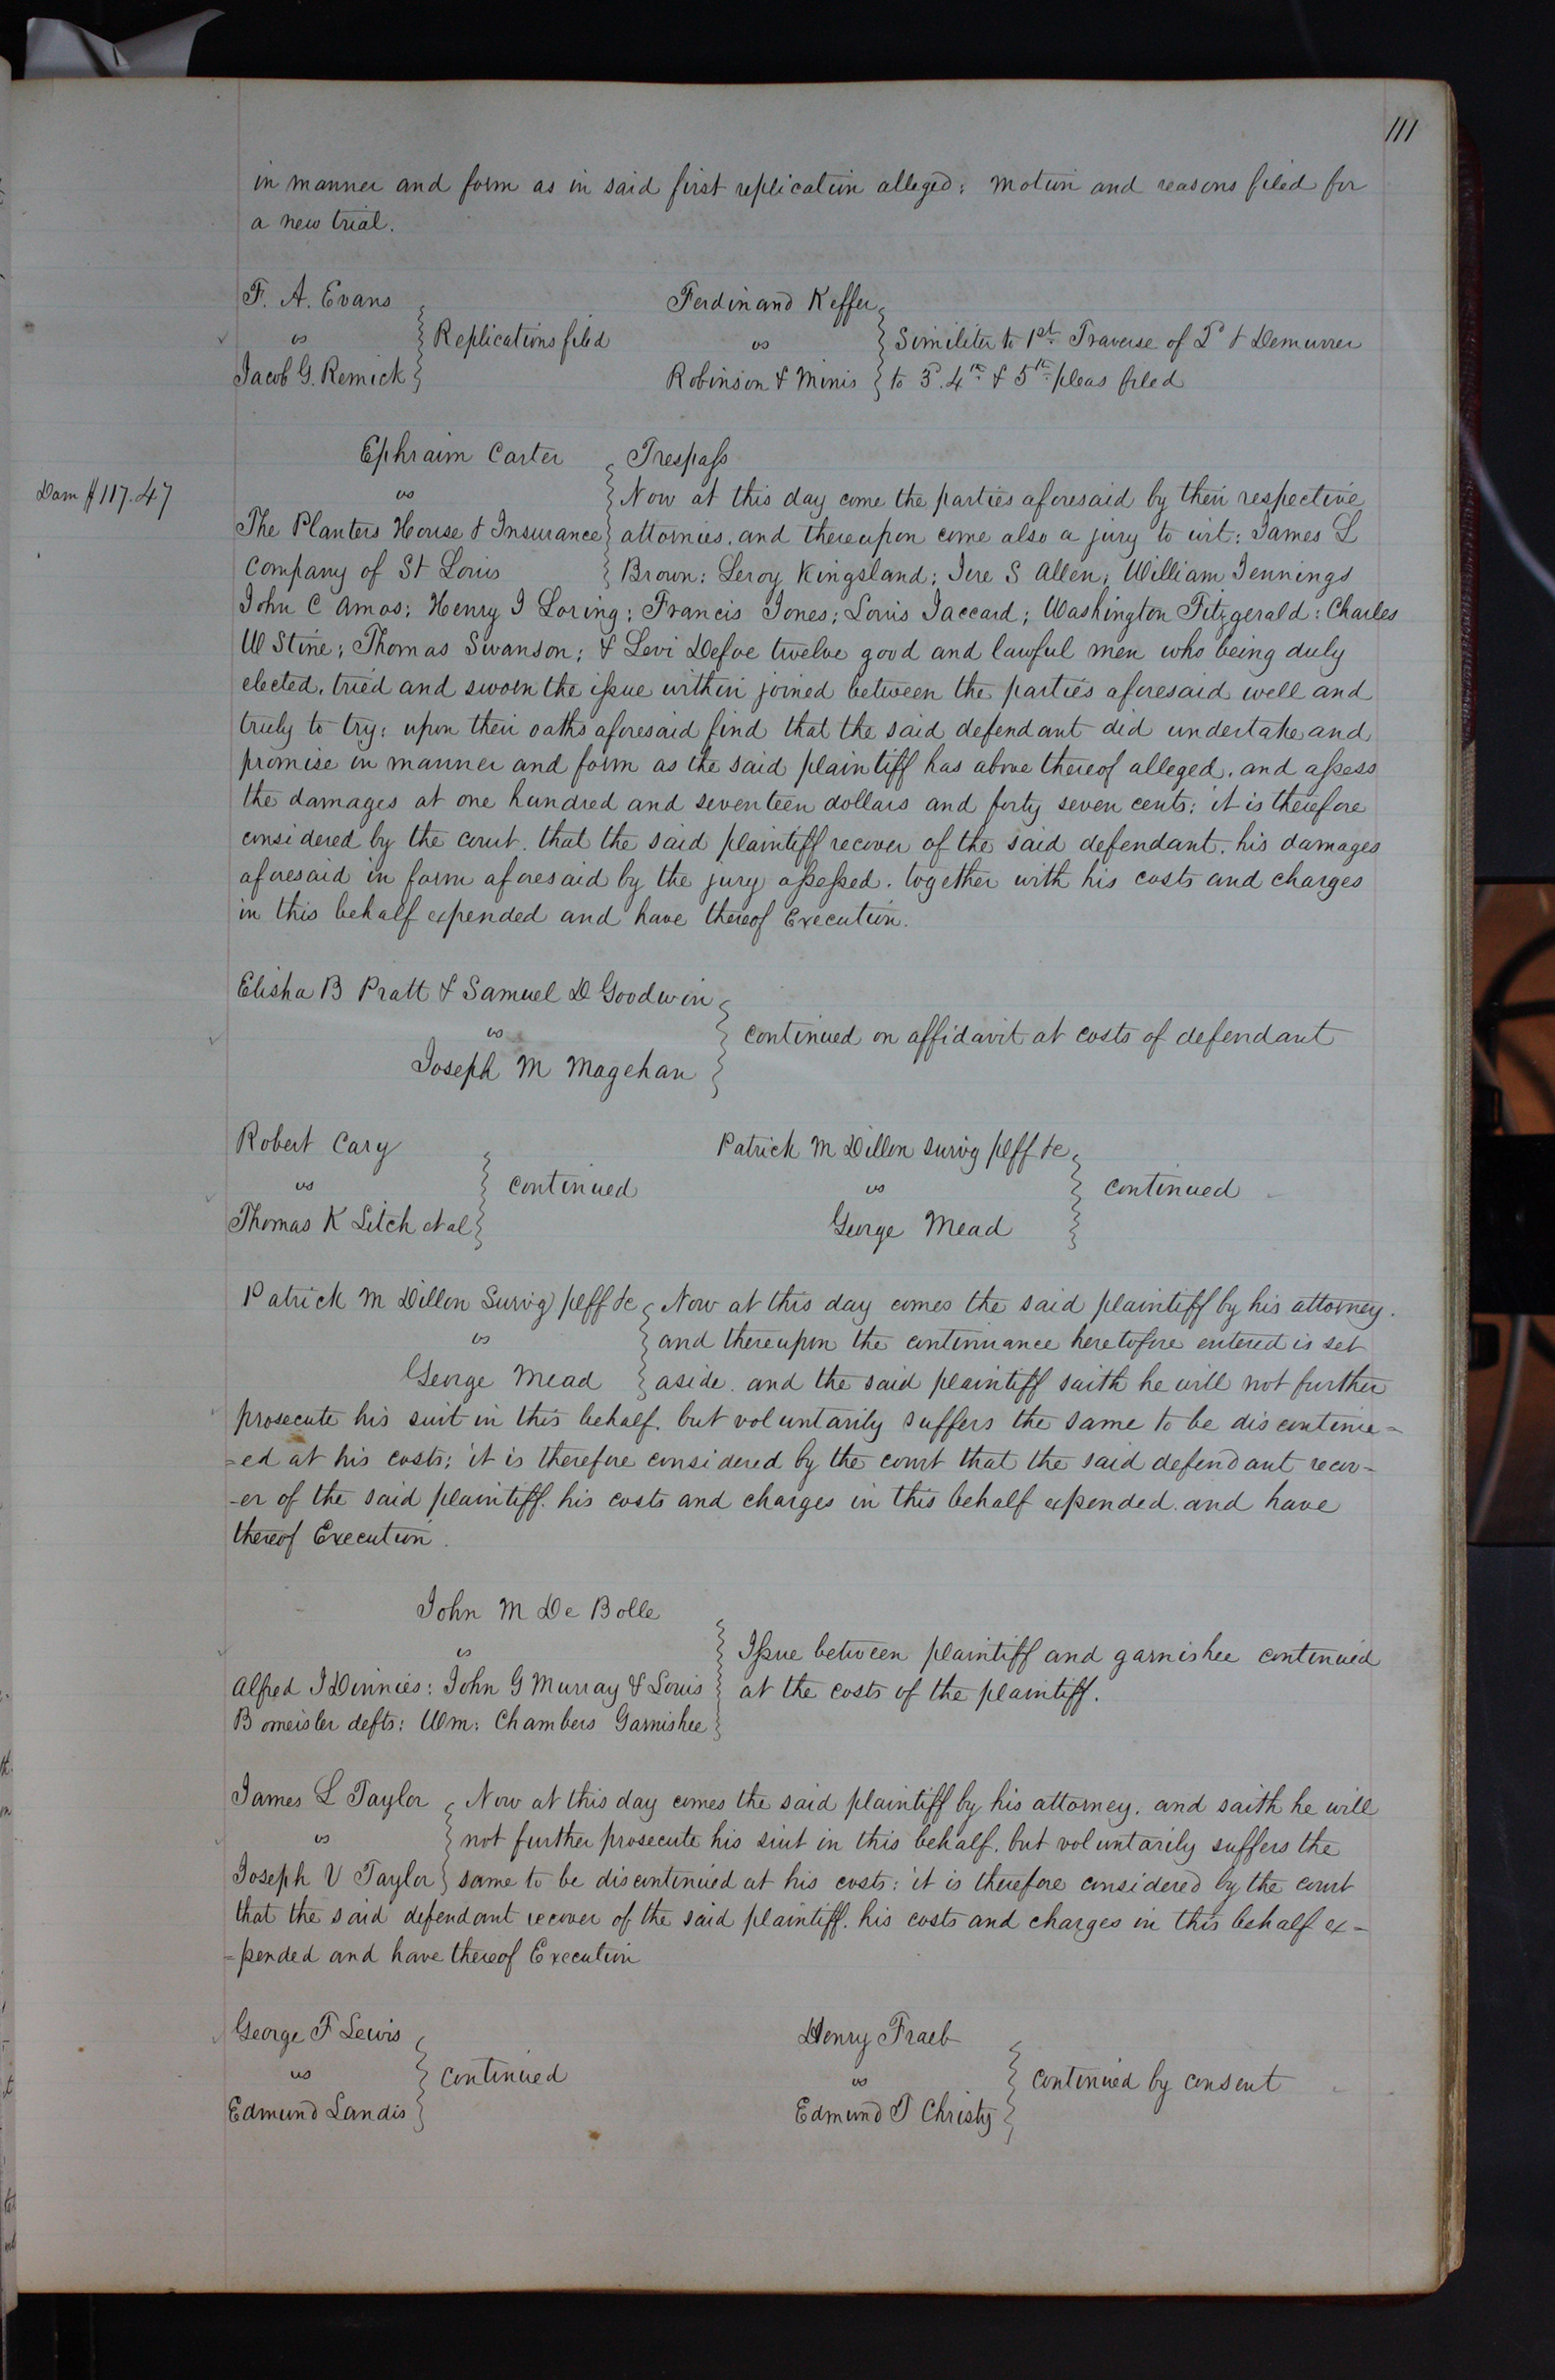 111
in manner and form as in said first replication alleged: motion and reasons filed for
a new trial.
F. A. Evans
vs
Jacob G. Remick
Replications filed
Ferdinand Keffer
vs
Robinson & Minis
Similiter to 1st Traverse of 2d & Demurrer
to 3d. 4th & 5th pleas filed
Dam $117.47
Ephraim Carter
Trespass
vs
Now at this day come the parties aforesaid by their respective
The Planters House & Insurance
attornies, and thereupon come also a jury to wit: James L
Company of St Louis
Brown: Leroy Kingsland; Jere S Allen; William Jennings
John C Amos; Henry J Loring; Francis Jones; Louis Jaccard; Washington Fitzgerald: Charles
W Stine; Thomas Swanson; & Levi Defoe twelve good and lawful men who being duly
elected, tried and sworn the issue within joined between the parties aforesaid well and
truly to try: upon their oaths aforesaid find that the said defendant did undertake and
promise in manner and form as the said plaintiff has above thereof alleged, and assess
the damages at one hundred and seventeen dollars and forty seven cents: it is therefore
considered by the court, that the said plaintiff recover of the said defendant, his damages
aforesaid in form aforesaid by the jury assessed, together with his costs and charges
in this behalf expended and have thereof Execution.
Elisha B Pratt & Samuel D Goodwin
vs
Joseph M Magehan
continued on affidavit at costs of defendant
Robert Cary
vs
Thomas K Litch et al
continued
Patrick M Dillon Survig plff &c
vs
George Mead
continued
Patrick M Dillon Survig plff &c
Now at this day comes the said plaintiff by his attorney.
vs
and thereupon the continuance heretofore entered is set
George Mead
aside. and the said plaintiff saith he will not further
prosecute his suit in this behalf. but voluntarily suffers the same to be discontinu=
=ed at his costs; it is therefore considered by the court that the said defendant recov-
-er of the said plaintiff. his costs and charges in this behalf expended. and have
thereof Execution.
John M De Bolle
vs
Alfred J Dinnies: John G Murray & Louis
Bomeisler defts: Wm: Chambers Garnishee
Issue between plaintiff and garnishee continued
at the costs of the plaintiff.
James L Taylor
Now at this day comes the said plaintiff by his attorney, and saith he will
vs
not further prosecute his suit in this behalf, but voluntarily suffers the
Joseph V Taylor
same to be discontinued at his costs: it is therefore considered by the court
that the said defendant recover of the said plaintiff. his costs and charges in this behalf ex=
=pended and have thereof Execution
George F Lewis
vs
Edmund Landis
continued
Henry Fraeb
vs
Edmund T Christy
continued by consent